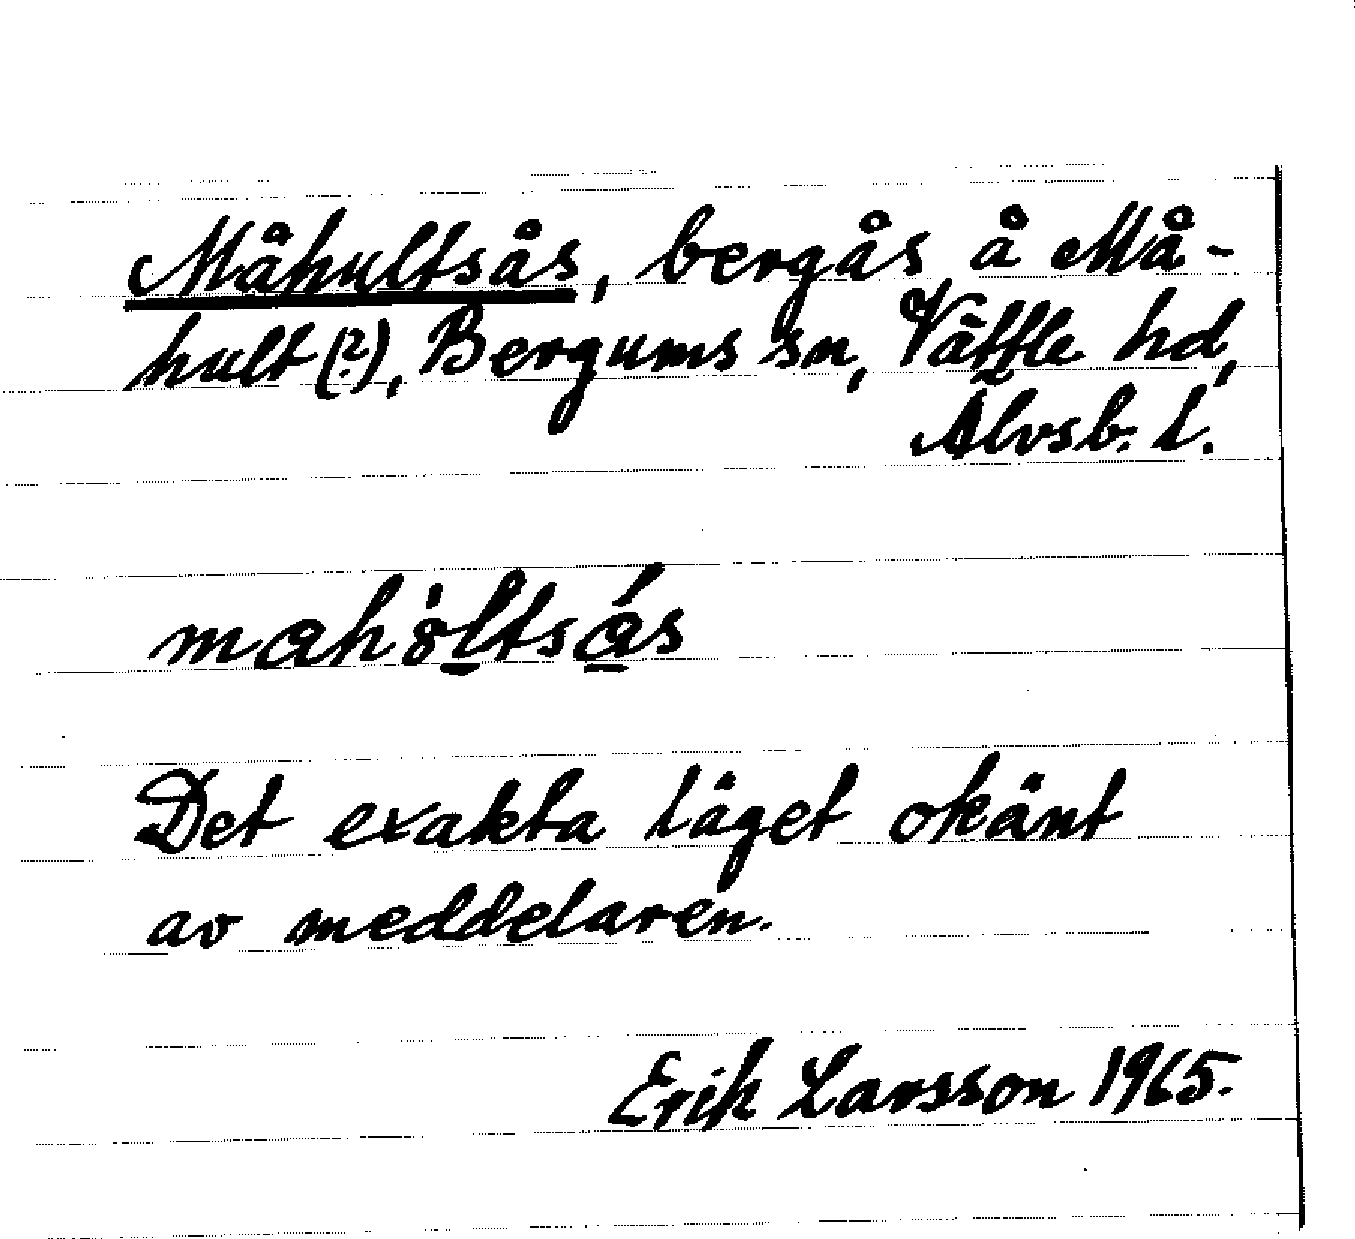 Måhultsås, bergås å Må-
hult (?), Bergums sn, Vättle hd,
Älvsb. l.
Det exakta läget okänt
av meddelaren.
Erik Larsson 1965.